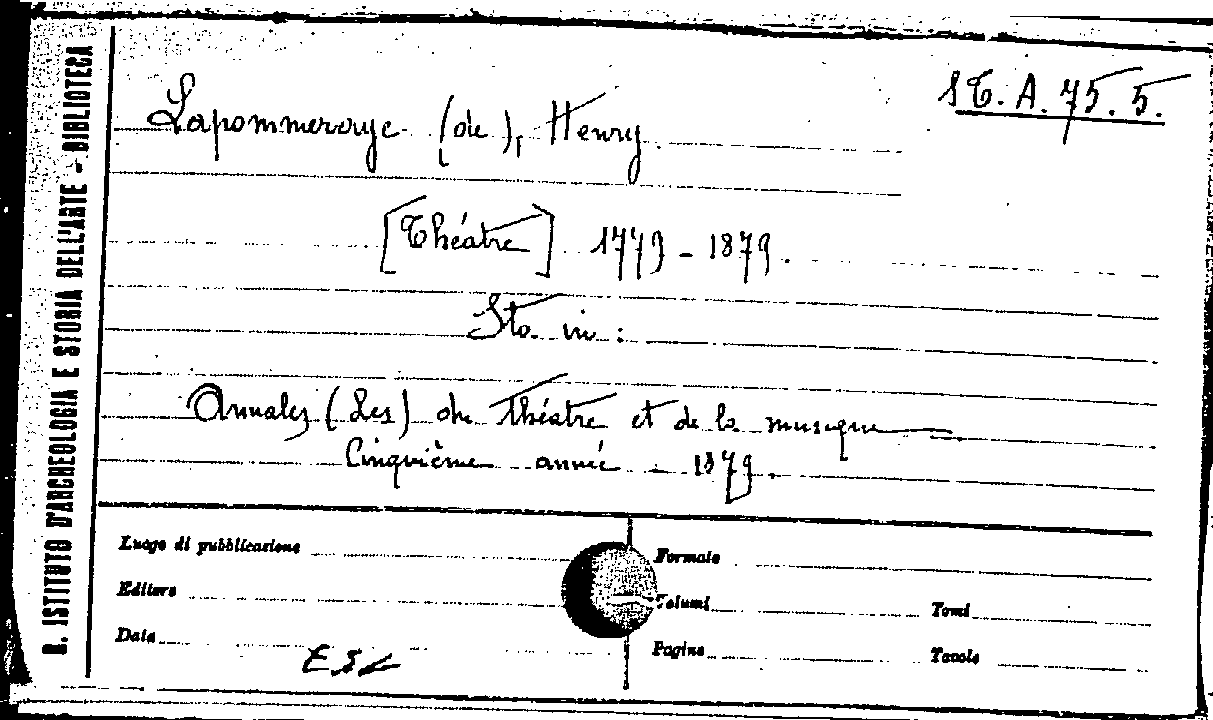 R. ISTITUTO D'ARCHEOLOGIA E STORIA DELL'ARTE - BIBLIOTECA
St. A. 75. 5.
Lapommeraye (de), Henry.
[Théatre] 1779 - 1879.
Sta in:
Annales (Les) du théatre et de la musique
Cinquième année - 1879.
Luogo di pubblicazione
Formato
Editore
Volumi
Tomi
Data
Pagine
Tavole